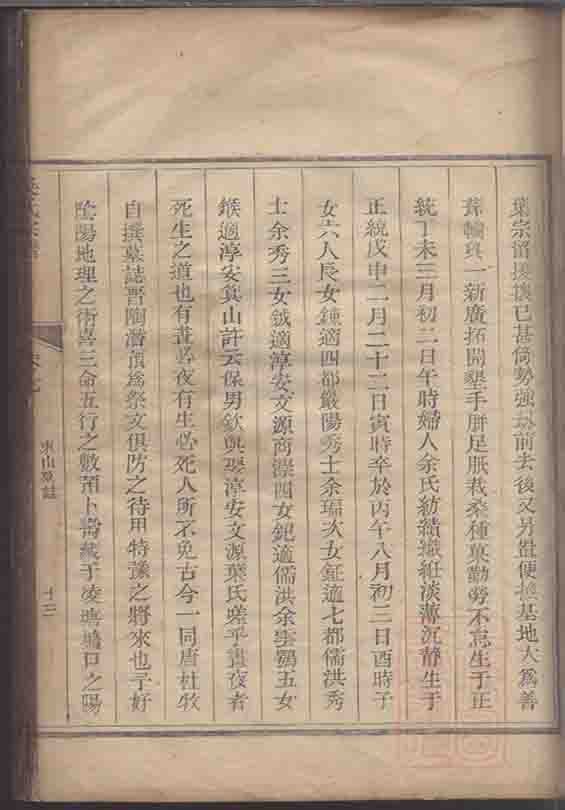 葉宗留擾攘已甚倚勢強刦前去後又另置便換基地大為善
葺輪奐一新廣拓開墾手胼足胝栽桑種菓勤勞不怠生于正
統丁未三月初二日午時婦人余氏紡績織紝淡薄沉靜生于
正統戊申二月二十二日寅時卒於丙午八月初三日酉時子
女六人長女鍾適四都嚴陽秀士余瑞次女鉦適七都儒洪秀
士余秀三女鉞適淳安文源商深四女鈀適儒洪余雲鶚五女
鍭適淳安賀山許云保男欽興娶淳安文源葉氏嗟乎晝夜者
死生之道也有晝必夜有生必死人所不免古今一同唐杜牧
自撰墓誌晋陶潛預為祭文俱防之待用特豫之將來也予好
陰陽地理之術喜三命五行之數預卜壽藏于凌塢塘口之陽
東山墓誌
十三